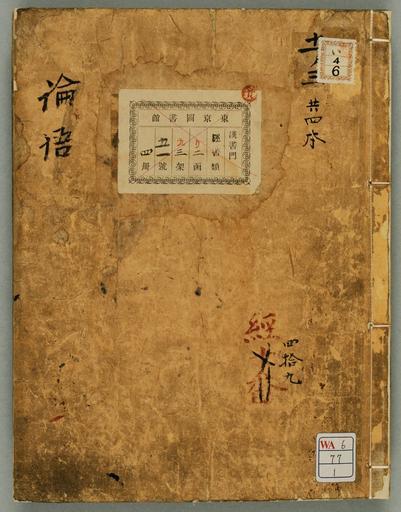 論語
東京圖書館
漢書門
經書類
二函
九三架
五一號
四冊
共四本
い
4
6
經
四拾九
WA 6
77
1